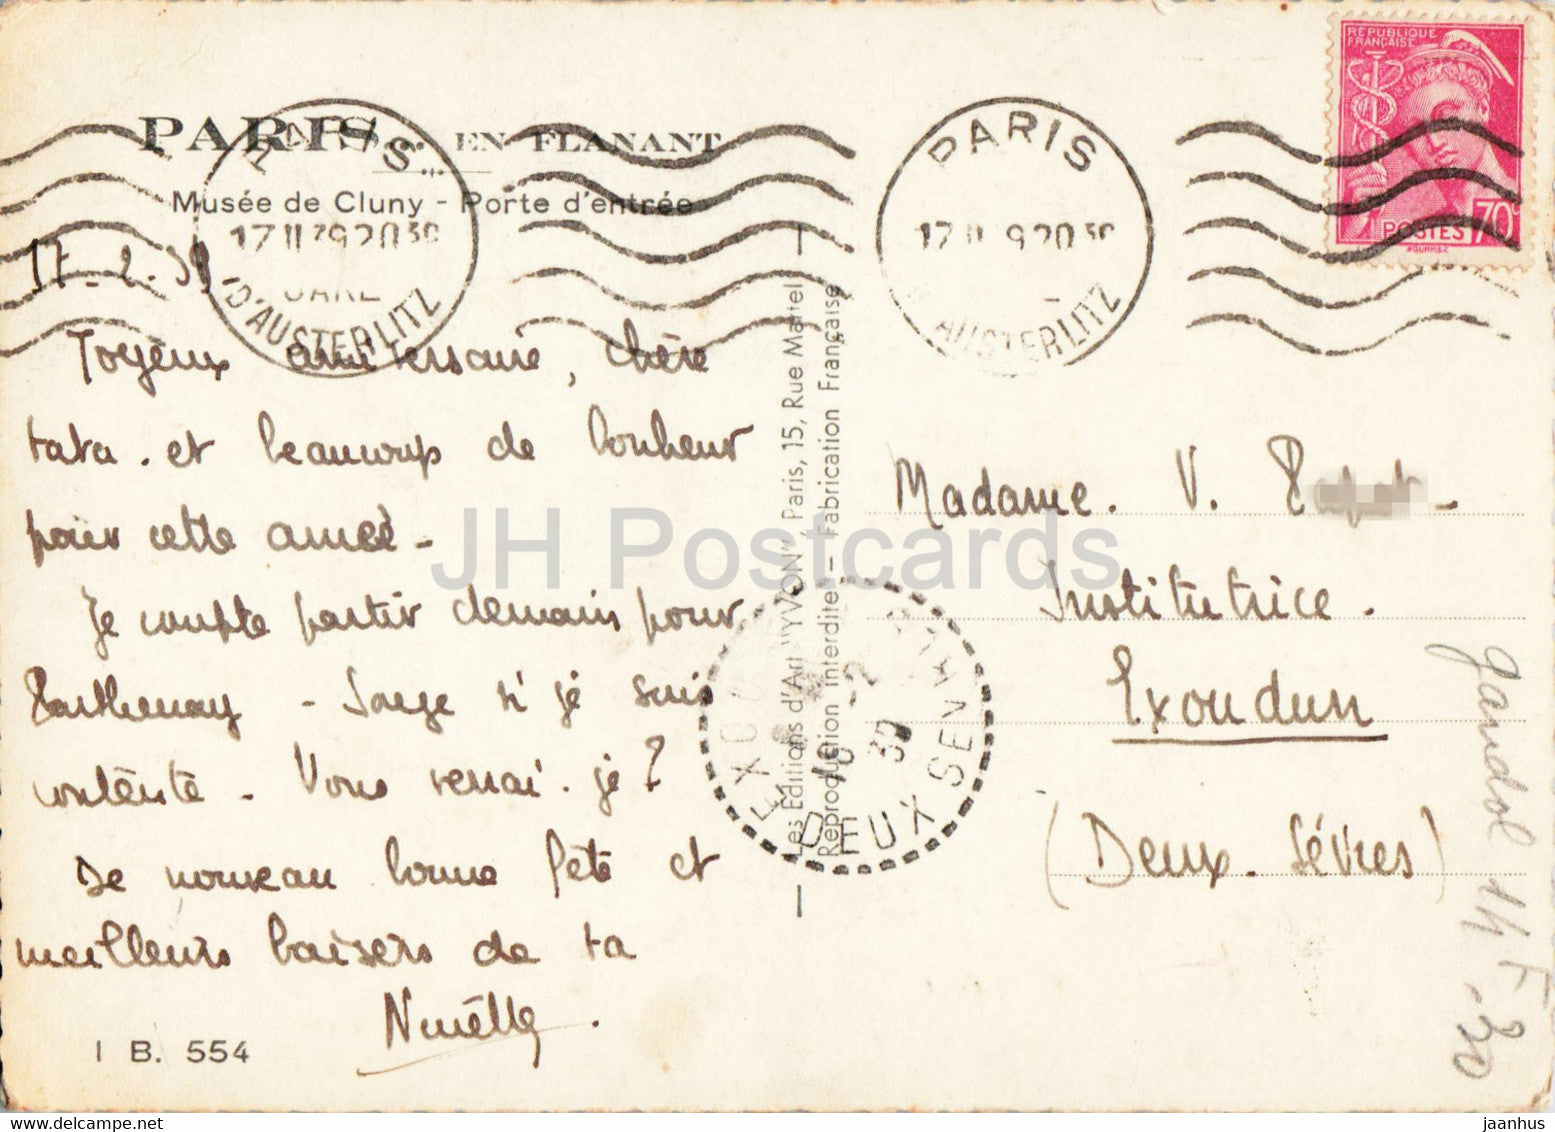 PARIS... EN FLANANT
Musée de Cluny - Porte d'entrée
PARIS
17 II 39 20 30
GARE
D'AUSTERLITZ
PARIS
17 II 39 20 30
AUSTERLITZ
RÉPUBLIQUE
FRANÇAISE
POSTES 70c
17-2-39-
Joyeux anniversaire, chère
tata. et beaucoup de bonheur
pour cette année -
Je compte partir demain pour
Parthenay - Songe si je suis
contente - Vous verrai-je ?
De nouveau bonne fête et
meilleurs baisers de ta
I B. 554
Les Editions d'Art "YVON", Paris, 15, Rue Martel
Reproduction Interdite - Fabrication Française
Madame. V.
Institutrice.
Exoudun
(Deux-Sèvres)
EXOUDUN
18 -2
39
DEUX SEVRES
14 F
JH Postcards
jaanhus